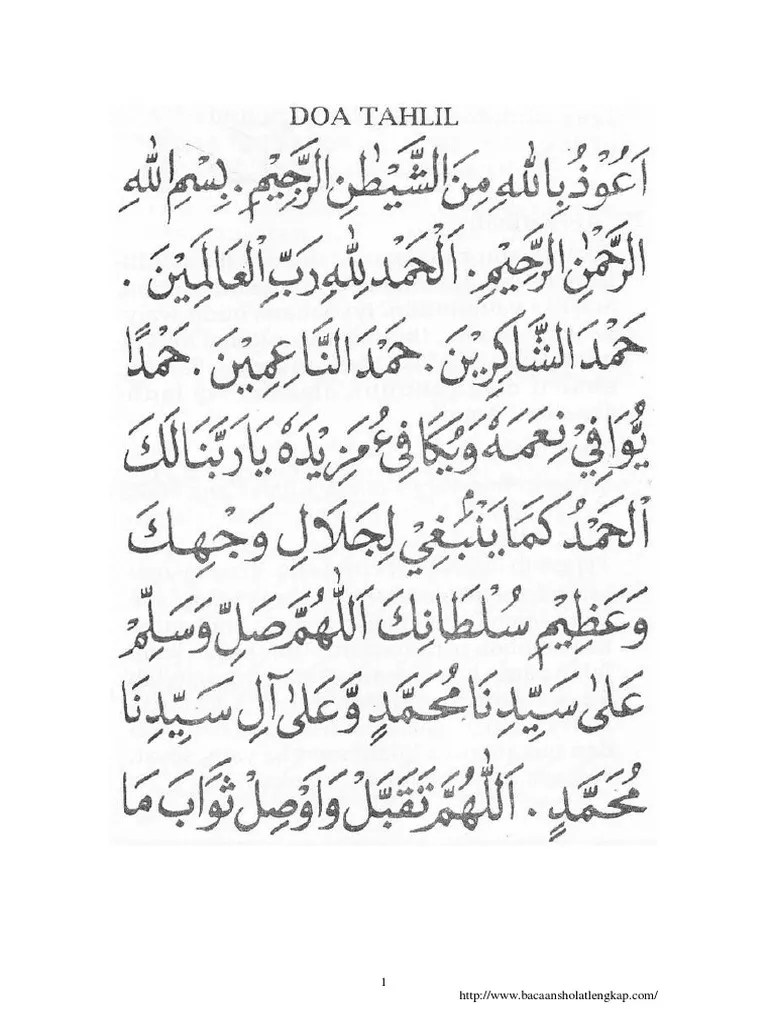 DOA TAHLIL
اَعُوْذُ بِاللهِ مِنَ الشَّيْطٰنِ الرَّجِيْمِ. بِسْمِ اللهِ
الرَّحْمٰنِ الرَّحِيْمِ. اَلْحَمْدُ لِلّٰهِ رَبِّ الْعَالَمِيْنَ.
حَمْدَ الشَّاكِرِيْنَ. حَمْدَ النَّاعِمِيْنَ. حَمْدًا
يُّوَافِيْ نِعَمَهٗ وَيُكَافِئُ مَزِيْدَهٗ يَا رَبَّنَا لَكَ
الْحَمْدُ كَمَا يَنْۢبَغِيْ لِجَلَالِ وَجْهِكَ
وَعَظِيْمِ سُلْطَانِكَ اَللّٰهُمَّ صَلِّ وَسَلِّمْ
عَلٰى سَيِّدِنَا مُحَمَّدٍ وَّعَلٰى آلِ سَيِّدِنَا
مُحَمَّدٍ. اَللّٰهُمَّ تَقَبَّلْ وَاَوْصِلْ ثَوَابَ مَا
1
http://www.bacaansholatlengkap.com/